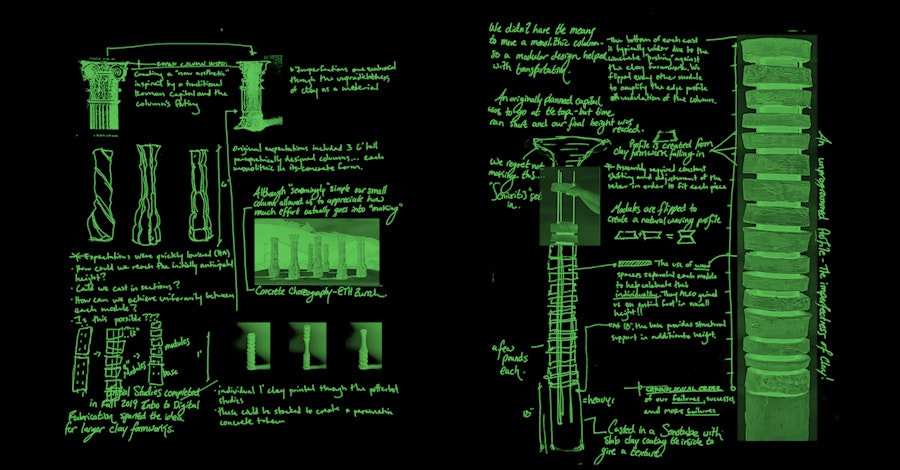 Creating a "new aesthetic"
inspired by a traditional
Roman Capital and the
column's fluting
Imperfections are embraced
through the unpredictableness
of clay as a material
Original expectations included 3 6' tall
parametrically designed columns... each
monolithic in its concrete form.
6'
Although "seemingly" simple our small
column allowed us to appreciate how
much effort actually goes into "making"
Concrete Choreography - ETH Zurich
Expectations were quickly lowered
• How could we reach the initially anticipated
height?
• Could we cast in sections?
• How can we achieve uniformity between
each module?
• Is this possible???
modules
base
1'
Digital Studies completed
in Fall 2019 Intro to Digital
Fabrication sparked the idea
for larger clay formworks.
• individual 1' clay printed through the potterbot
studies
• these could be stacked to create a parametric
concrete totem
We didn't have the means
to move a monolithic column -
so a modular design helped
with transportation.
An originally planned capital
was to go at the top - but time
ran short and our final height was
reached.
We regret not
making this...
in.
a few
pounds
each.
18"
=heavy!
Casted in a Sonotube with
slab clay coating the inside to
give a texture.
- The bottom of each cast
is typically wider due to the
concrete "pushing" against
the clay formwork. We
flipped every other module
to amplify the edge profile
of the column.
Profile is created from
clay formwork falling-in
* Assembly required constant
shifting and adjustment of the
rebar in order to fit each piece
Modules are flipped to
create a natural waving profile
The use of wood
spacers separated each module
to help celebrate their
individuality. They ALSO gained
us an entire foot in overall
height!!
At 18", the base provides structural
support in addition to height
CHRONOLOGICAL ORDER
of our failures, successes
and more failures
An unprogrammed Profile - The imperfectness of Clay!